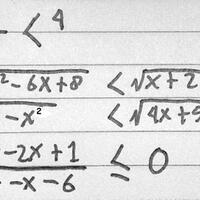 - < 4
²-6x+8 < √x+2
-x² < √4x+5
-2x+1 / -x-6 ≤ 0